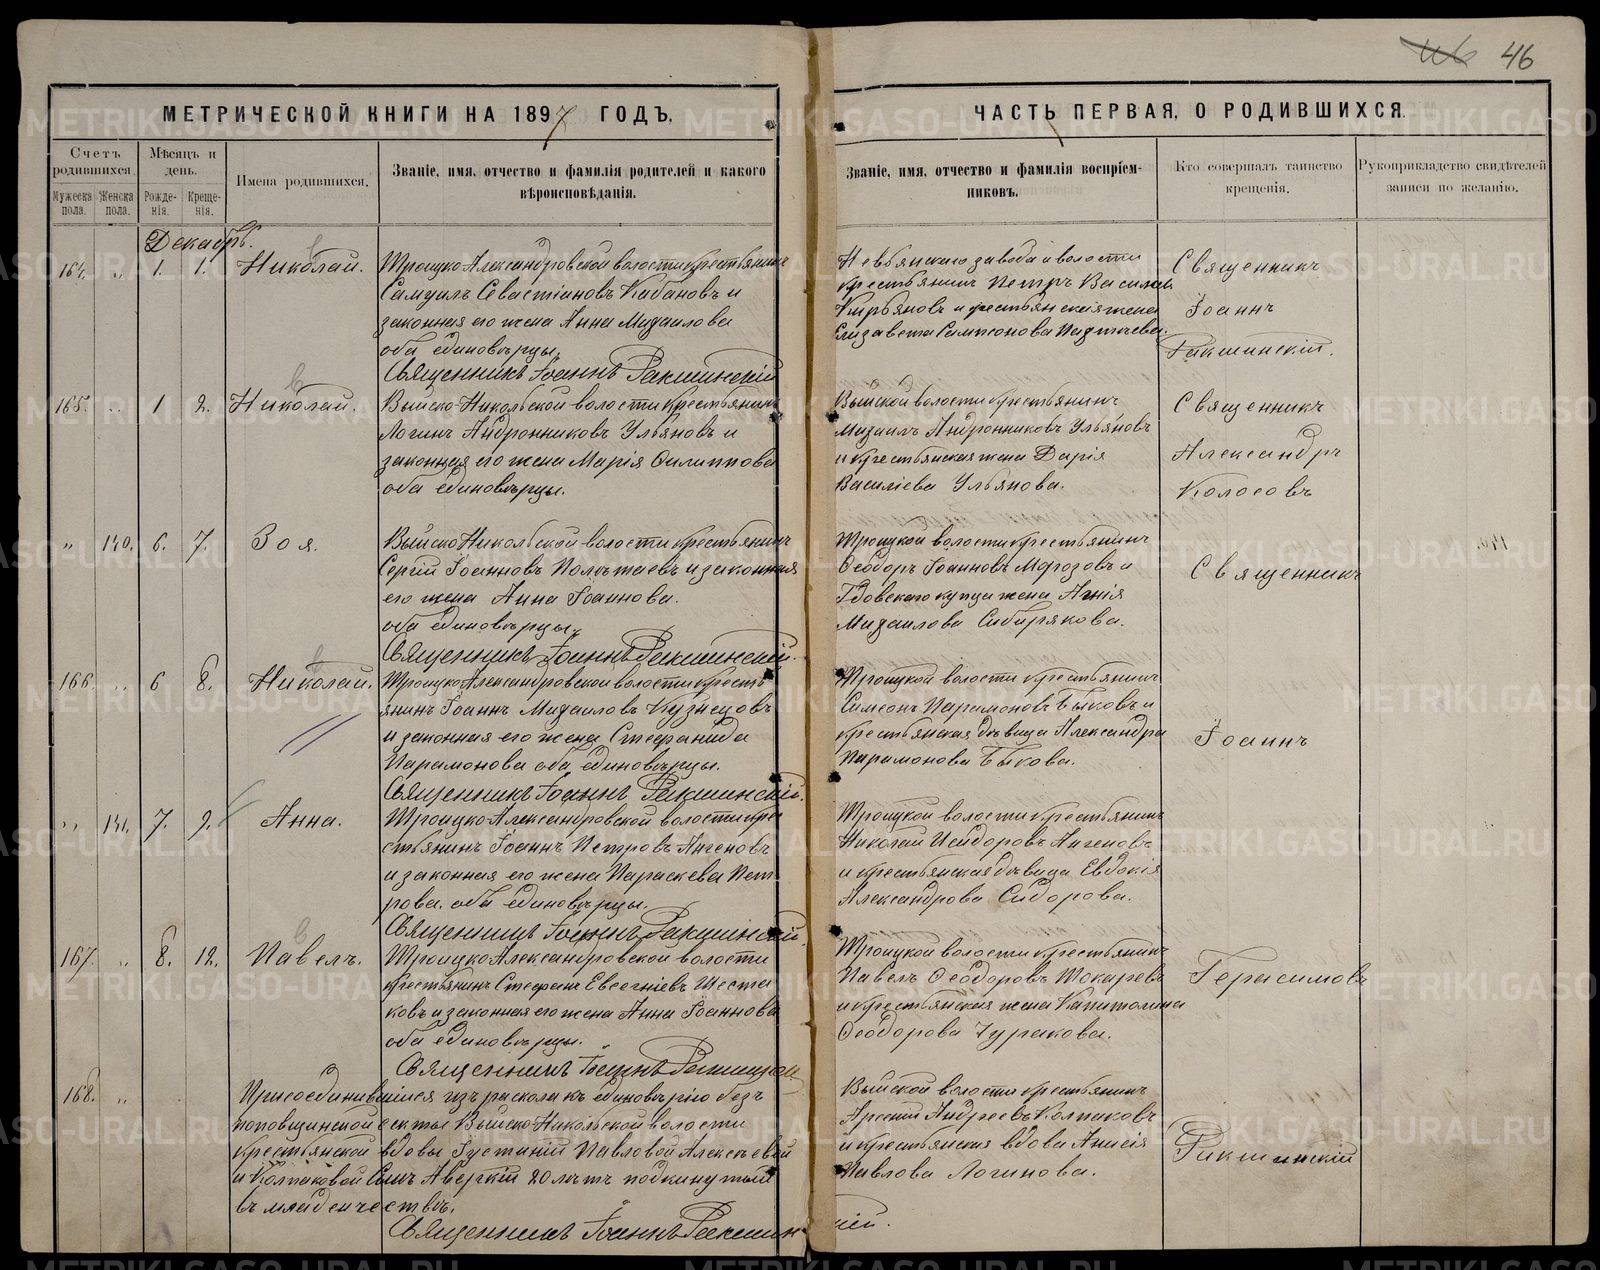 46
МЕТРИЧЕСКОЙ КНИГИ НА 1897 ГОДЪ,
ЧАСТЬ ПЕРВАЯ, О РОДИВШИХСЯ.
Счетъ родившихся.
Мужеска пола.
Женска пола.
Мѣсяцъ и день.
Рожде-
нія.
Креще-
нія.
Имена родившихся.
Званіе, имя, отчество и фамилія родителей и какого
вѣроисповѣданія.
Званіе, имя, отчество и фамилія воспріем-
никовъ.
Кто совершалъ таинство
крещенія.
Рукоприкладство свидѣтелей
записи по желанію.
Декабрь.
164. „ 1. 1. Николай.
Троицко Александровской волости крестьянинъ
Самуилъ Севастіановъ Кабановъ и
законная его жена Анна Михаилова
оба единовѣрцы.
Священникъ Іоаннъ Ракшинскій
Невьянскаго завода и волости
крестьянинъ Петръ Васильевъ
и крестьянская жена
Елизавета Сампсонова
Священникъ
Іоаннъ
Ракшинскій.
165. „ 1 2. Николай.
Выйско-Никольской волости крестьянинъ
Логинъ Андронниковъ Ульяновъ и
законная его жена Марія Филиппова
оба единовѣрцы.
Выйской волости крестьянинъ
Михаилъ Андронниковъ Ульяновъ
и крестьянская жена Дарія
Василіева Ульянова.
Священникъ
Александръ
Колосовъ
„ 140. 6. 7. Зоя.
Выйско Никольской волости крестьянинъ
Сергій Іоанновъ Полѣтаевъ и законная
его жена Анна Іоаннова.
оба единовѣрцы.
Священникъ Іоаннъ Ракшинскій.
Троицкой волости крестьянинъ
Ѳеодоръ Іоанновъ Морозовъ и
купца жена Агнія
Михаилова Сибирякова.
Священникъ
166. „ 6 8. Николай.
Троицко Александровской волости кресть
янинъ Іоаннъ Михаиловъ Кузнецовъ
и законная его жена Стефанида
Парамонова оба единовѣрцы.
Священникъ Іоаннъ Ракшинскій.
Троицкой волости крестьянинъ
Симеонъ Парамоновъ Быковъ и
крестьянская дѣвица Александра
Парамонова Быкова.
Іоаннъ
„ 141. 7. 9. Анна.
Троицко Александровской волости кре
стьянинъ Іоаннъ Петровъ Аггеновъ
и законная его жена Параскева Пет
рова. оба единовѣрцы.
Священникъ Іоаннъ Ракшинскій.
Троицкой волости крестьянинъ
Николай Исидоровъ Аггеновъ
и крестьянская дѣвица Евдокія
Александрова Сидорова.
167. „ 8. 12. Павелъ.
Троицко Александровской волости
крестьянинъ Стефанъ Евсегніевъ Шеста
ковъ и законная его жена Анна Іоаннова
оба единовѣрцы.
Священникъ Іоаннъ Ракшинскій
Троицкой волости крестьянинъ
Павелъ Ѳеодоровъ Токаревъ
и крестьянская жена Капитолина
Ѳеодорова Чуракова.
Герасимовъ
168. „
Присоединившійся изъ раскола къ единовѣрію безъ
поповщинской секты Выйско Никольской волости
крестьянской вдовы Іустиніи Павловой Алексѣевой
и Колпаковой сынъ Аверкій 20 лѣтъ подкинутый
въ младенчествѣ.
Священникъ Іоаннъ Ракшинскій.
Выйской волости крестьянинъ
Арсеній Андреевъ Колпаковъ
и крестьянская вдова Анисія
Павлова Логинова.
Ракшинскій
METRIKI.GASO-URAL.RU